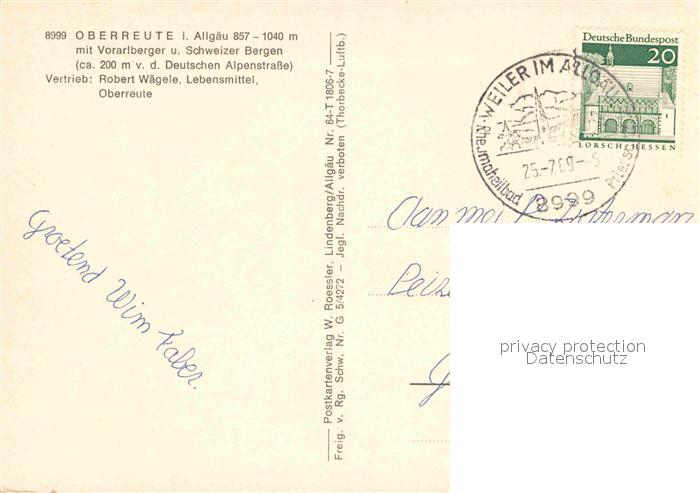 8999 OBERREUTE i. Allgäu 857 – 1040 m
mit Vorarlberger u. Schweizer Bergen
(ca. 200 m v. d. Deutschen Alpenstraße)
Vertrieb: Robert Wägele, Lebensmittel,
Oberreute
Groetend Wim Faber.
Postkartenverlag W. Roessler, Lindenberg/Allgäu Nr. 64-T 1806-7
Freig. v. Rg. Schw. Nr. G 5/4272 – Jegl. Nachdr. verboten (Thorbecke-Luftb.)
Deutsche Bundespost
20
LORSCH/HESSEN
WEILER IM ALLGÄU
Rheumaheilbad
25.-7.69.--
8999
Aan
privacy protection
Datenschutz